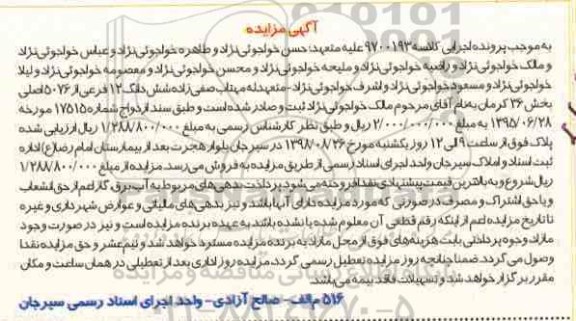 آگهی مزایده
به موجب پرونده اجرایی کلاسه ۹۷۰۰۱۹۳ علیه متعهد: حسن خواجوئی‌نژاد و طاهره خواجوئی‌نژاد و عباس خواجوئی‌نژاد
و مالک خواجوئی‌نژاد و راضیه خواجوئی‌نژاد و ملیحه خواجوئی‌نژاد و محسن خواجوئی‌نژاد و معصومه خواجوئی‌نژاد و لیلا
خواجوئی‌نژاد و مسعود خواجوئی‌نژاد و اشرف خواجوئی‌نژاد - متعهدله مهتاب صفی‌زاده شش دانگ ۱۲ فرعی از ۵۰۷۶ اصلی
بخش ۳۶ کرمان به نام آقای مرحوم مالک خواجوئی‌نژاد ثبت و صادر شده است و طبق سند ازدواج شماره ۱۷۵۱۵ مورخه
۱۳۹۵/۰۶/۲۸ به مبلغ ۲/۰۰۰/۰۰۰/۰۰۰ ریال و طبق نظر کارشناس رسمی به مبلغ ۱/۲۸۸/۸۰۰/۰۰۰ ریال ارزیابی شده
پلاک فوق از ساعت ۹ الی ۱۲ روز یکشنبه مورخ ۱۳۹۸/۰۸/۲۶ در سیرجان بلوار هجرت بعد از بیمارستان امام رضا(ع) اداره
ثبت اسناد و املاک سیرجان واحد اجرای اسناد رسمی از طریق مزایده به فروش می‌رسد. مزایده از مبلغ ۱/۲۸۸/۸۰۰/۰۰۰
ریال شروع و به بالاترین قیمت پیشنهادی نقدا فروخته می‌شود پرداخت بدهی‌های مربوط به آب، برق، گاز اعم از حق انشعاب
و یا حق اشتراک و مصرف در صورتی که مورد مزایده دارای آنها باشد و نیز بدهی‌های مالیاتی و عوارض شهرداری و غیره
تا تاریخ مزایده اعم از اینکه رقم قطعی آن معلوم شده یا نشده باشد به عهده برنده مزایده است و نیز در صورت وجود
مازاد وجوه پرداختی بابت هزینه‌های فوق از محل مازاد به برنده مزایده مسترد خواهد شد و نیم‌عشر و حق مزایده نقدا
وصول می‌گردد. ضمنا چنانچه روز مزایده تعطیل رسمی گردد، مزایده روز اداری بعد از تعطیلی در همان ساعت و مکان
مقرر برگزار خواهد شد و تسهیلات فاقد بیمه می‌باشد.
۵۱۶ م/الف - صالح آزادی - واحد اجرای اسناد رسمی سیرجان